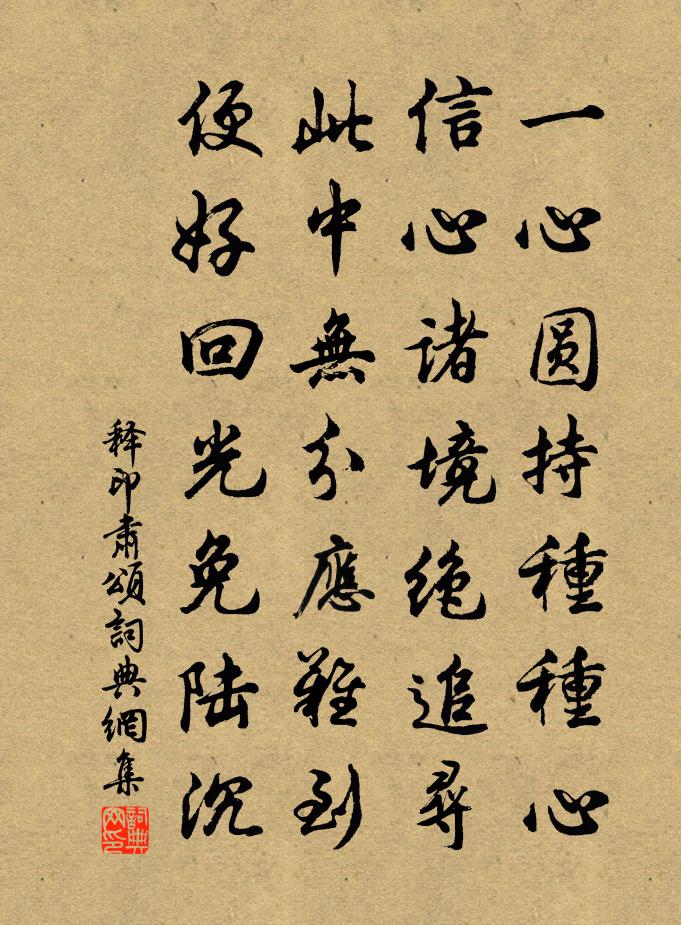 一心圆持種種心
信心諸境绝追尋
此中無分應難到
便好回光免陆沉
释印肅頌詞典網集
詞典网印